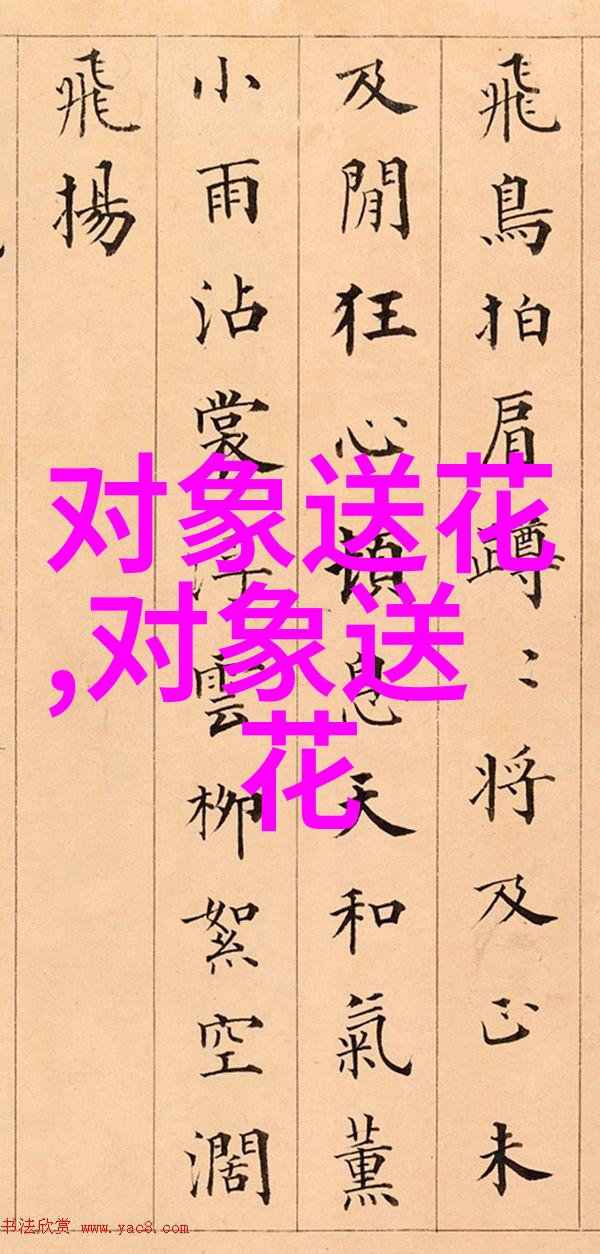 飛鳥拍肩蹲〻将及正未
及閒狂心頓息天和氣薰
小雨沾裳浮雲柳絮空濶
飛揚
对象送花
,对象送
花
书法欣赏 www.yac8.com